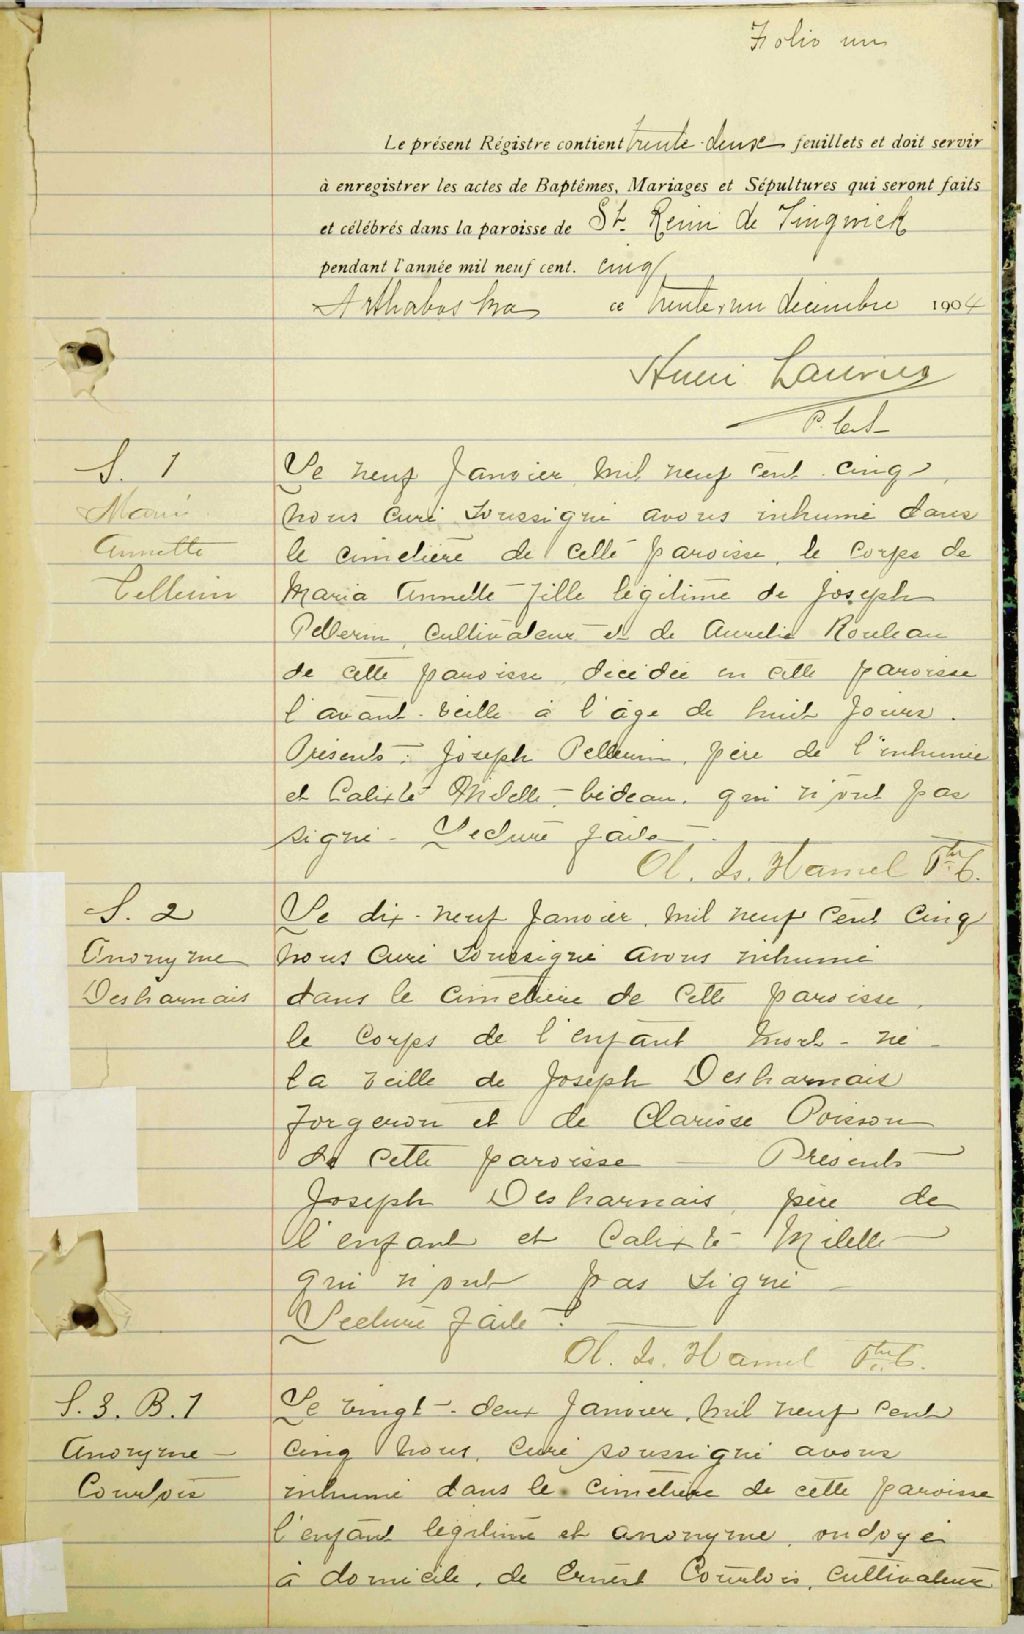 Folio un
Le présent Régistre contient trente-deux feuillets et doit servir
à enregistrer les actes de Baptêmes, Mariages et Sépultures qui seront faits
et célébrés dans la paroisse de St. Remi de Tingwick
pendant l'année mil neuf cent. cinq
Arthabaska ce trente-un décembre 1904
Henri Laurier
S. 1
Marie
Annette
Pellerin
Le neuf Janvier, mil neuf cent cinq,
nous curé soussigné avons inhumé dans
le cimetière de cette paroisse, le corps de
Maria Annette fille légitime de Joseph
Pellerin, cultivateur et de Aurelie Rouleau
de cette paroisse, décédée en cette paroisse
l'avant-veille à l'âge de huit jours.
Présents: Joseph Pellerin, père de l'inhumée
et Calixte Milette, bedeau, qui n'ont pas
signé - Lecture faite -
Ol. Is. Hamel Ptre C.
S. 2
Anonyme
Desharnais
Le dix-neuf Janvier, mil neuf cent cinq
nous curé soussigné avons inhumé
dans le cimetière de cette paroisse,
le corps de l'enfant mort-né -
la veille de Joseph Desharnais
forgeron et de Clarisse Poisson
de cette paroisse - Présents
Joseph Desharnais, père de
l'enfant et Calixte Milette
qui n'ont pas signé -
Lecture faite.
Ol. Is. Hamel Ptre C.
S. 3. B. 1
Anonyme -
Courtois
Le vingt-deux Janvier, mil neuf cent
cinq nous, curé soussigné avons
inhumé dans le cimetière de cette paroisse
l'enfant légitime et anonyme, ondoyé
à domicile, de Ernest Courtois, cultivateur